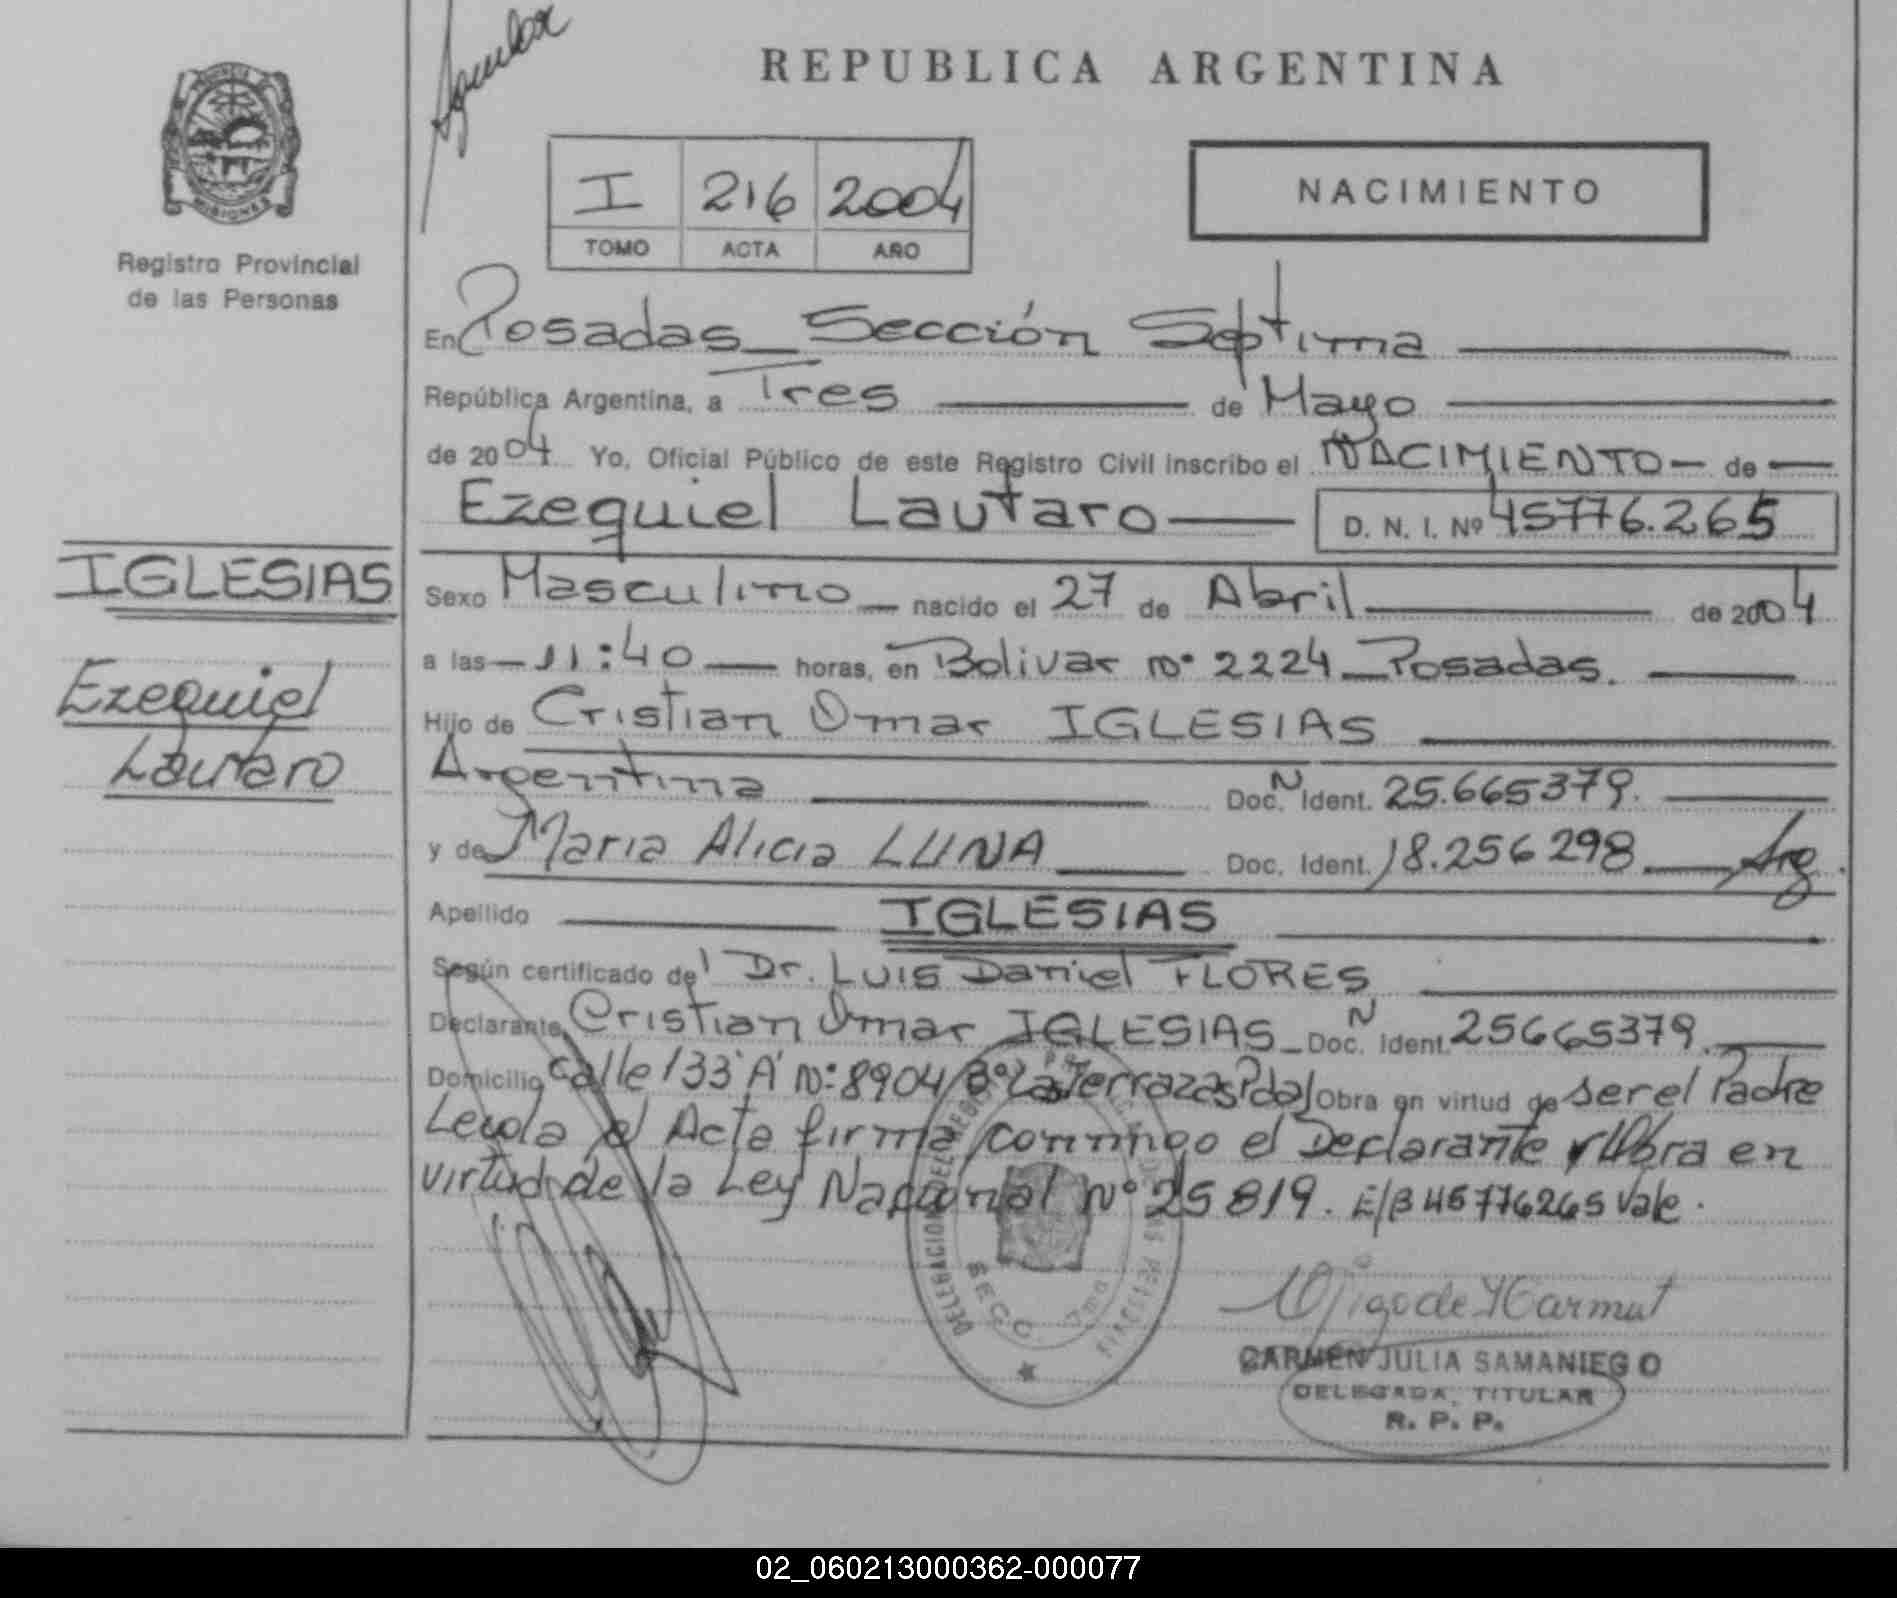 REPUBLICA ARGENTINA
MISIONES
Registro Provincial
de las Personas
I 216 2004
TOMO ACTA AÑO
NACIMIENTO
En Posadas_Sección Septima
República Argentina, a Tres de Mayo
de 2004 Yo, Oficial Público de este Registro Civil inscribo el NACIMIENTO de
Ezequiel Lautaro D. N. I. Nº 45776.265
IGLESIAS
Ezequiel
Lautaro
Sexo Masculino nacido el 27 de Abril de 2004
a las 11:40 horas, en Bolivar Nº 2224_Posadas.
Hijo de Cristian Omar IGLESIAS
Argentina Doc. N Ident. 25.665379.
y de Maria Alicia LUNA Doc. Ident. 18.256298 Arg.
Apellido IGLESIAS
Según certificado del Dr. LUIS Daniel FLORES
Declarante Cristian Omar IGLESIAS_Doc. N Ident. 25665379.
Domicilio Calle 133"A" Nº:8904 Bº Las Terrazas Pdas Obra en virtud de ser el Padre
Leida el Acta firma conmigo el Declarante Obra en
virtud de la Ley Nacional Nº 25819. E/B 45776265 Vale.
DELEGACION DEL REGISTRO PROVINCIAL DE LAS PERSONAS
SECC. 7ma
CARMEN JULIA SAMANIEGO
DELEGADA TITULAR
R. P. P.
02_060213000362-000077